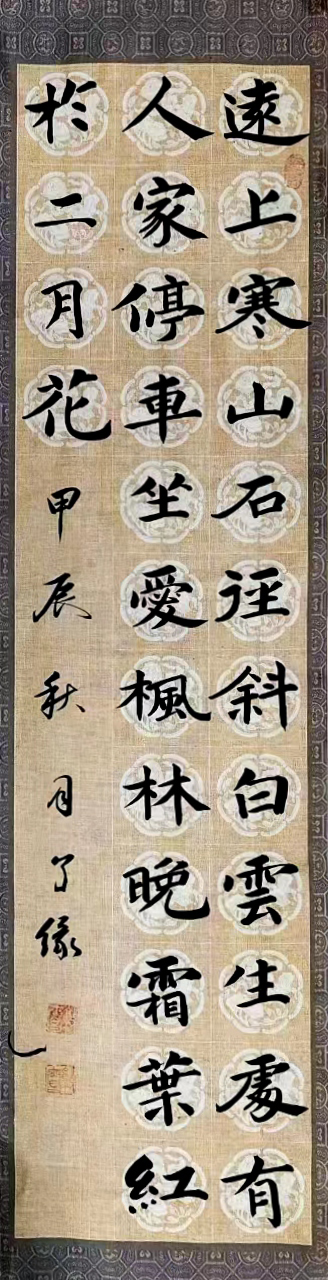 遠上寒山石徑斜白雲生處有
人家停車坐愛楓林晚霜葉紅
於二月花甲辰秋月了緣